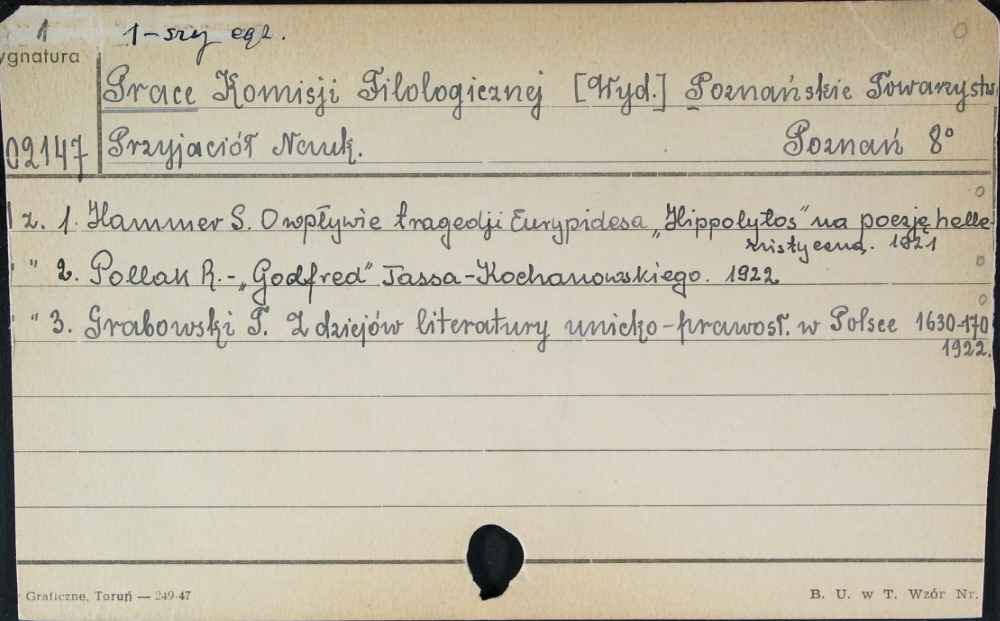 1 1-szy egz.
ygnatura
Prace Komisji Filologicznej [Wyd.] Poznańskie Towarzystw
02147 Przyjaciół Nauk. Poznań 8°
z. 1. Hammer S. O wpływie tragedji Eurypidesa „Hippolytos" na poezję helle-
nistyczną. 1921
" 2. Pollak R. - „Godfred" Tassa-Kochanowskiego. 1922
" 3. Grabowski T. Z dziejów literatury unicko-prawosł. w Polsce 1630-170
1922.
Graficzne, Toruń — 249-47 B. U. w T. Wzór Nr.